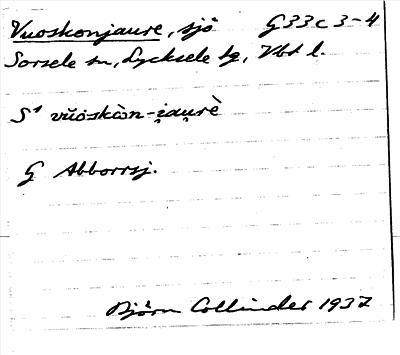 Vuoskonjaure, sjö G33c 3-4
Sorsele sn, Lycksele lg, Vbt l.
S¹ vŭöskòn-i̯au̯rè
G Abborrsj.
Björn Collinder 1937